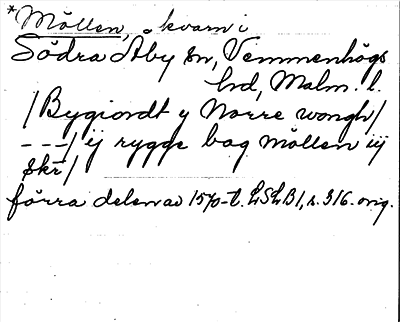 *Möllen, kvarn i
Södra Åby sn, Vemmenhögs
hd, Malm. l.
/Bygiordt y Norre wongh/
---/ ij rygge bag möllen iij
skr/
förra delen av 1570-t. LSLB1, s. 316. orig.